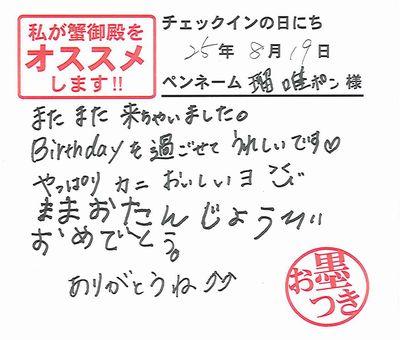 私が蟹御殿を
オススメ
します!!
チェックインの日にち
25年 8月 19日
ペンネーム 瑠唯ポン 様
また また 来ちゃいました。
Birthdayを過ごせて うれしいです♡
やっぱり カニ おいしいヨ
ままおたんじょうび
おめでとう。
ありがとうね♪♪
お墨
つき